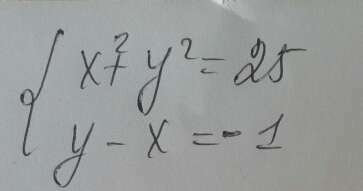 x²+y²=25
y-x=-1